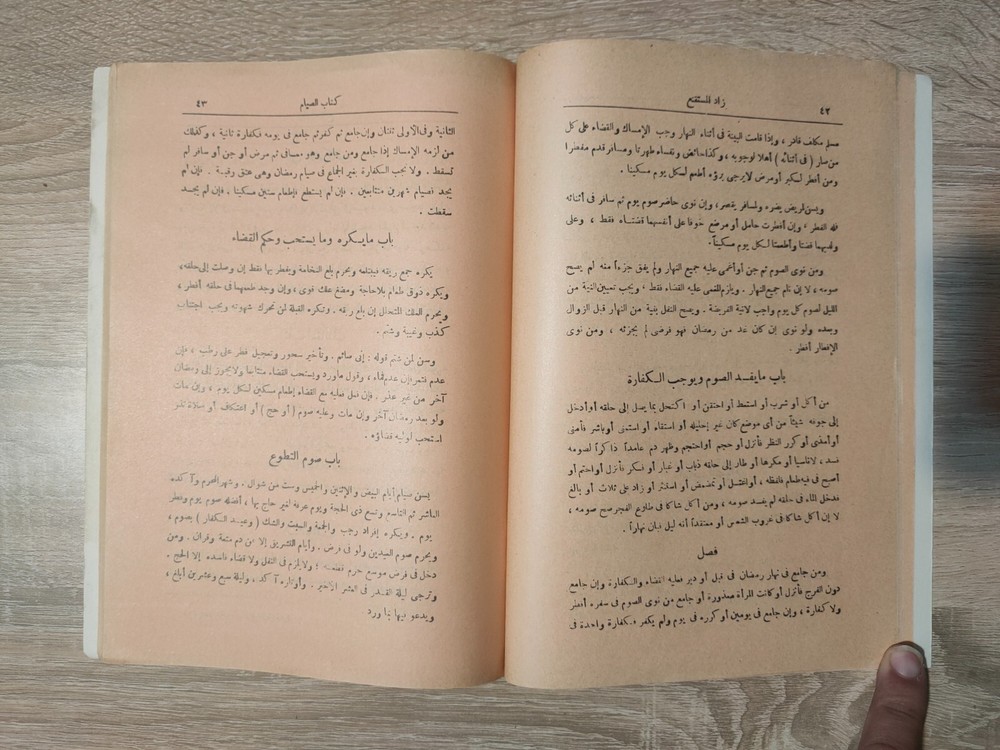 ٤٢ زاد المستقنع
مسلم مكلف قادر ، وإذا قامت البينة فى أثناء النهار وجب الإمساك والقضاء على كل
من صار ( فى أثنائه ) أهلا لوجوبه ، وكذا حائض ونفساء طهرتا ومسافر قدم مفطرا
ومن أفطر لكبر أو مرض لا يرجى برؤه أطعم لكل يوم مسكينا .
ويسن لمريض يضره ولمسافر يقصر ، وإن نوى حاضر صوم يوم ثم سافر فى أثنائه
فله الفطر ، وإن أفطرت حامل أو مرضع خوفا على أنفسهما قضتاه فقط ، وعلى
ولديهما قضتا وأطعمتا لكل يوم مسكيناً .
ومن نوى الصوم ثم جن أو أغمى عليه جميع النهار ولم يفق جزءاً منه لم يصح
صومه ، لا إن نام جميع النهار . ويلزم المغمى عليه القضاء فقط ، ويجب تعيين النية من
الليل لصوم كل يوم واجب لا نية الفريضة . ويصح النفل بنية من النهار قبل الزوال
وبعده ولو نوى إن كان غد من رمضان فهو فرضى لم يجزئه ، ومن نوى
الإفطار أفطر .
باب ما يفسد الصوم ويوجب الكفارة
من أكل أو شرب أو استعط أو احتقن أو اكتحل بما يصل إلى حلقه أو أدخل
إلى جوفه شيئاً من أى موضع كان غير إحليله أو استقاء أو استمنى أو باشر فأمنى
أو أمذى أو كرر النظر فأنزل أو حجم أو احتجم وظهر دم عامداً ذاكراً لصومه
فسد ، لا ناسيا أو مكرها أو طار إلى حلقه ذباب أو غبار أو فكر فأنزل أو احتلم أو
أصبح فى فيه طعام فلفظه ، أو اغتسل أو تمضمض أو استنثر أو زاد على ثلاث أو بالغ
فدخل الماء فى حلقه لم يفسد صومه ، ومن أكل شاكا فى طلوع الفجر صح صومه ،
لا إن أكل شاكا فى غروب الشمس أو معتقداً أنه ليل فبان نهاراً .
فصل
ومن جامع فى نهار رمضان فى قبل أو دبر فعليه القضاء والكفارة وإن جامع
دون الفرج فأنزل أو كانت المرأة معذورة أو جامع من نوى الصوم فى سفره أفطر
ولا كفارة ، وإن جامع فى يومين أو كرره فى يوم ولم يكفر فكفارة واحدة فى
كتاب الصيام ٤٣
الثانية وفى الأولى ثنتان وإن جامع ثم كفر ثم جامع فى يومه فكفارة ثانية ، وكذلك
من لزمه الإمساك إذا جامع ومن جامع وهو معافى ثم مرض أو جن أو سافر لم
تسقط . ولا يجب الكفارة بغير الجماع فى صيام رمضان وهى عتق رقبة . فإن لم
يجد فصيام شهرين متتابعين . فإن لم يستطع فإطعام ستين مسكينا . فإن لم يجد
سقطت .
باب ما يكره وما يستحب وحكم القضاء
يكره جمع ريقه فيبتلعه ويحرم بلع النخامة ويفطر بها فقط إن وصلت إلى حلقه ،
ويكره ذوق طعام بلا حاجة ومضغ علك قوى ، وإن وجد طعمهما فى حلقه أفطر ،
ويحرم العلك المتحلل إن بلع ريقه . وتكره القبلة لمن تحرك شهوته ويجب اجتناب
كذب وغيبة وشتم .
وسن لمن شتم قوله : إنى صائم . وتأخير سحور وتعجيل فطر على رطب ، فإن
عدم فتمر فإن عدم فماء ، وقول ما ورد ويستحب القضاء متتابعا ولا يجوز إلى رمضان
آخر من غير عذر . فإن فعل فعليه مع القضاء إطعام مسكين لكل يوم ، وإن مات
ولو بعد رمضان آخر وإن مات وعليه صوم ( أو حج ) أو اعتكاف أو صلاة نذر
استحب لوليه قضاؤه .
باب صوم التطوع
يسن صيام أيام البيض والإثنين والخميس وست من شوال . وشهر المحرم وآكده
العاشر ثم التاسع وتسع ذى الحجة ويوم عرفة لغير حاج بها ، أفضله صوم يوم وفطر
يوم . ويكره إفراد رجب والجمعة والسبت والشك ( وعيد الكفار ) بصوم ،
ويحرم صوم العيدين ولو فى فرض . وأيام التشريق إلا من دم متعة وقران . ومن
دخل فى فرض موسع حرم قطعه ؛ ولا يلزم فى النفل ولا قضاء فاسده إلا الحج .
وترجى ليلة القدر فى العشر الأخير . وأوتاره آكد ، وليلة سبع وعشرين أبلغ ،
ويدعو فيها بما ورد